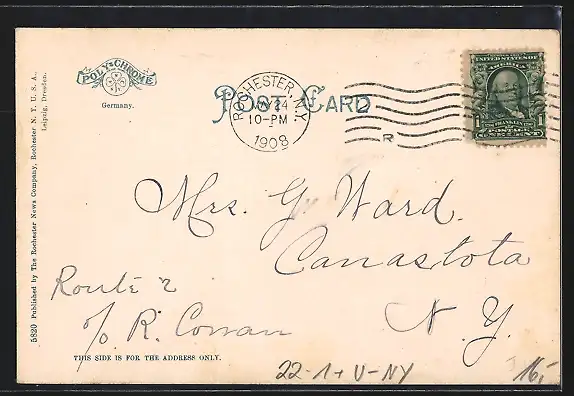 POLY-CHROME
Germany.
POST CARD
ROCHESTER, N.Y.
MAY 24
10-PM
1908
R
UNITED STATES OF
AMERICA
1 FRANKLIN 1
POSTAGE
ONE CENT
5820 Published by The Rochester News Company, Rochester N. Y. U. S. A.
Leipzig, Dresden.
Mrs. G. Ward.
Canastota
N. Y.
Route 2
c/o R. Cowan
THIS SIDE IS FOR THE ADDRESS ONLY.
22-1+U-NY
16,-